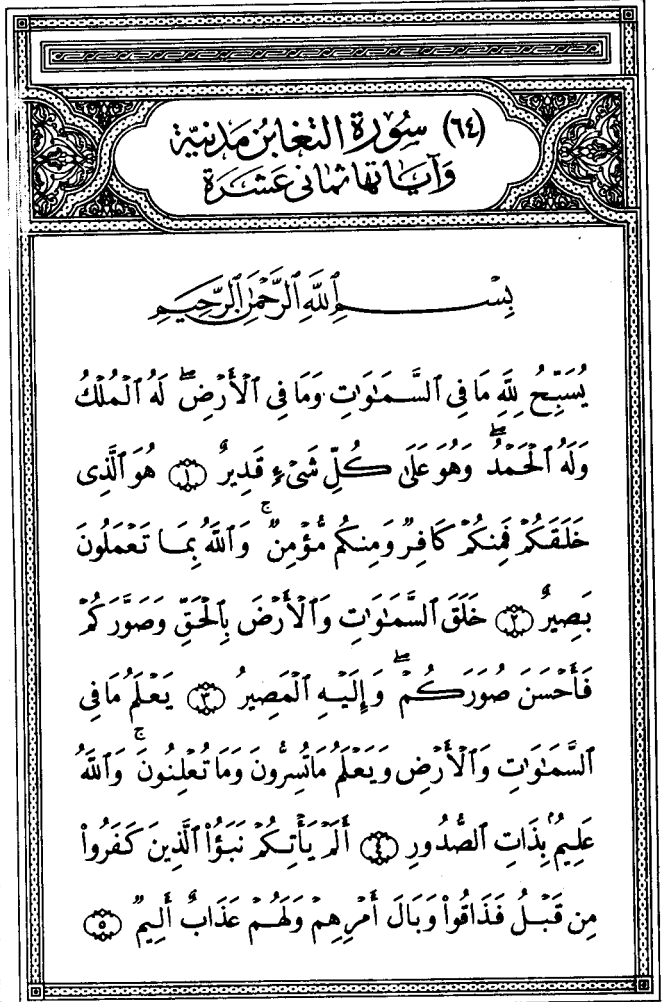 (٦٤) سُورَةُ التَّغَابُنِ مَدَنِيَّة
وَآيَاتُهَا ثَمَانِي عَشَرَة
بِسْمِ ٱللَّهِ ٱلرَّحْمَٰنِ ٱلرَّحِيمِ
يُسَبِّحُ لِلَّهِ مَا فِى ٱلسَّمَٰوَٰتِ وَمَا فِى ٱلْأَرْضِ ۖ لَهُ ٱلْمُلْكُ
وَلَهُ ٱلْحَمْدُ ۖ وَهُوَ عَلَىٰ كُلِّ شَىْءٍ قَدِيرٌ ﴿١﴾ هُوَ ٱلَّذِى
خَلَقَكُمْ فَمِنكُمْ كَافِرٌ وَمِنكُم مُّؤْمِنٌ ۚ وَٱللَّهُ بِمَا تَعْمَلُونَ
بَصِيرٌ ﴿٢﴾ خَلَقَ ٱلسَّمَٰوَٰتِ وَٱلْأَرْضَ بِٱلْحَقِّ وَصَوَّرَكُمْ
فَأَحْسَنَ صُوَرَكُمْ ۖ وَإِلَيْهِ ٱلْمَصِيرُ ﴿٣﴾ يَعْلَمُ مَا فِى
ٱلسَّمَٰوَٰتِ وَٱلْأَرْضِ وَيَعْلَمُ مَا تُسِرُّونَ وَمَا تُعْلِنُونَ ۚ وَٱللَّهُ
عَلِيمٌۢ بِذَاتِ ٱلصُّدُورِ ﴿٤﴾ أَلَمْ يَأْتِكُمْ نَبَؤُا۟ ٱلَّذِينَ كَفَرُوا۟
مِن قَبْلُ فَذَاقُوا۟ وَبَالَ أَمْرِهِمْ وَلَهُمْ عَذَابٌ أَلِيمٌ ﴿٥﴾